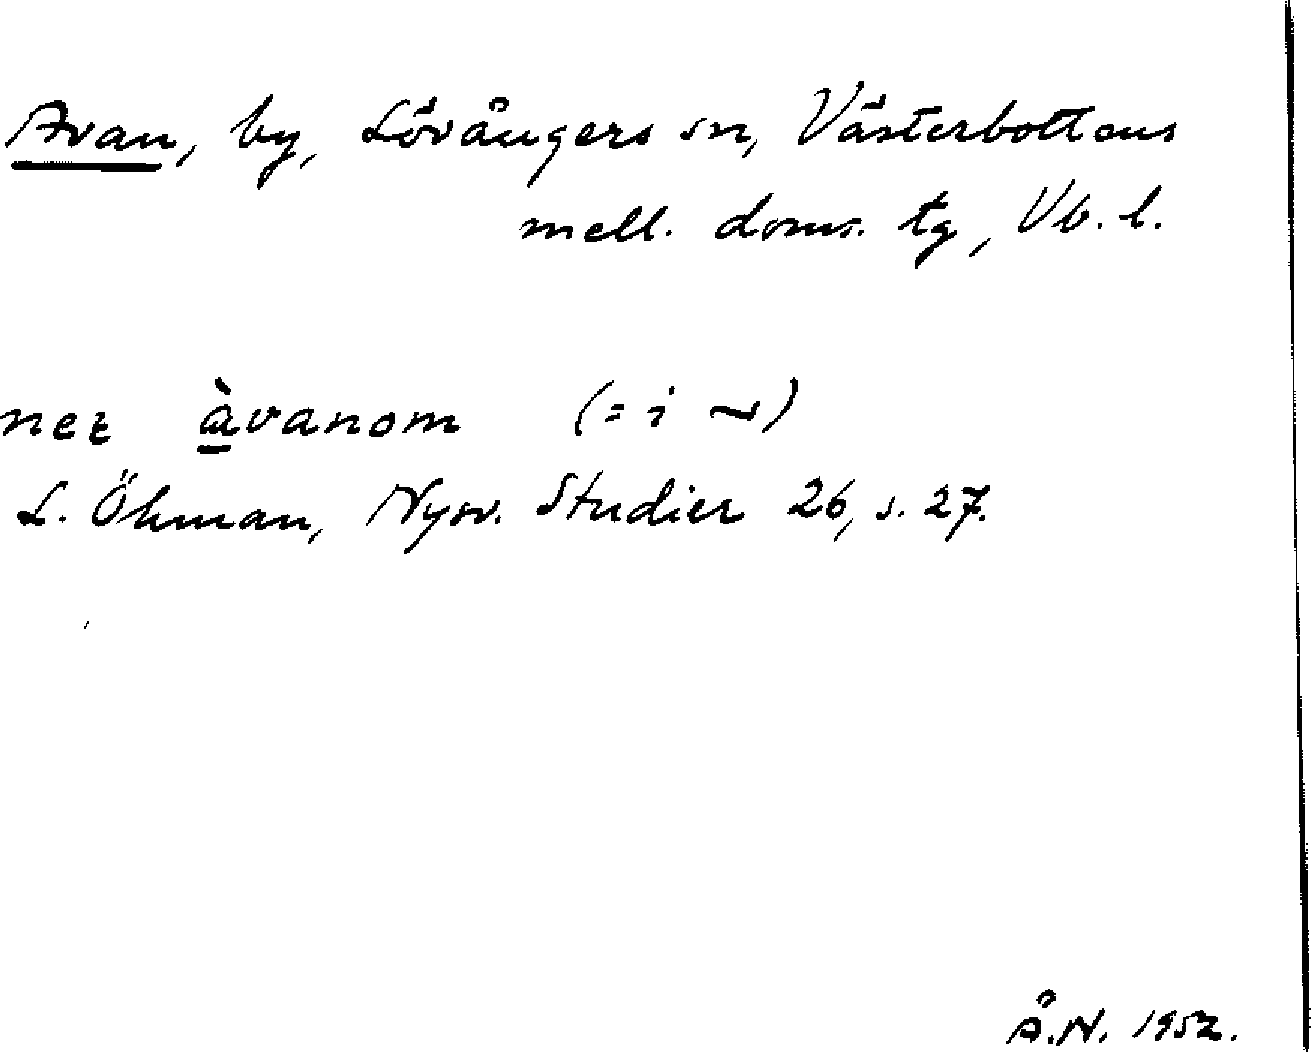 Avan, by, Lövångers sn, Västerbottens
mell. doms. tg, Vb. l.
àvanom (= i ~)
L. Öhman, Nysv. Studier 26, s. 27.
Å.N. 1952.